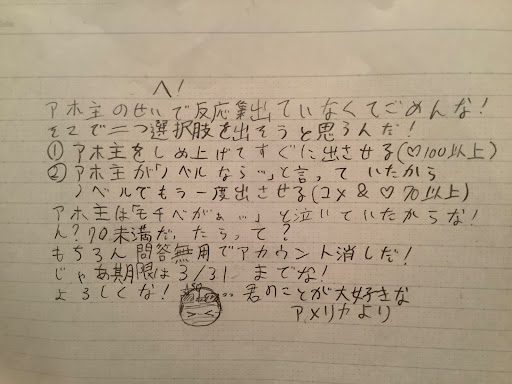 へ!
アホ主のせいで反応集出ていなくてごめんな!
そこで二つ選択肢を出そうと思うんだ!
① アホ主をしめ上げてすぐに出させる(♡100以上)
② アホ主が「ノベルなら…」と言っていたから
ノベルでもう一度出させる(コメ&♡70以上)
アホ主は「モチベがぁ…」と泣いていたからな!
ん?70未満だったらって?
もちろん問答無用でアカウント消しだ!
じゃあ期限は3/31までな!
よろしくな! 君のことが大好きな
アメリカより